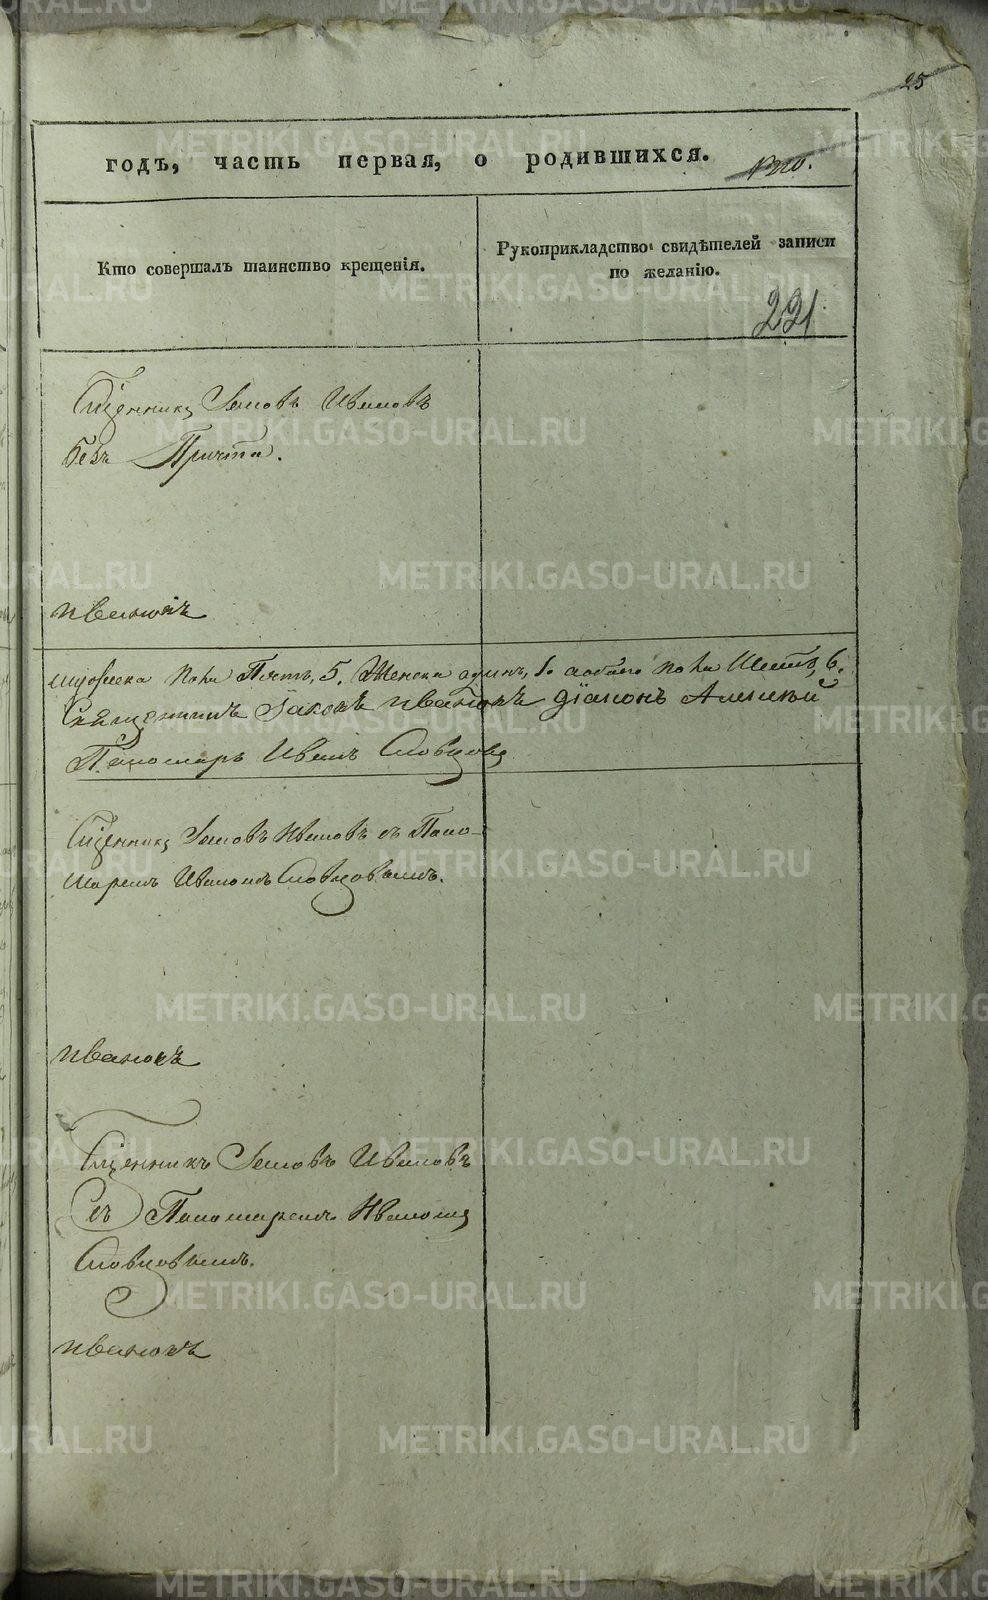 25
годъ, часть первая, о родившихся.
Кто совершалъ таинство крещенія.
Рукоприкладство свидѣтелей записи
по желанію.
221
Сщенникъ Іаковъ Ивановъ
безъ Причта.
ивановъ
пола Пять, 5. Женска одинъ, 1. обоего пола Шесть, 6.
Священникъ Іаковъ ивановъ діаконъ Алексѣй
Пономарь Иванъ Словцовъ
Сщенникъ Іаковъ Ивановъ съ Поно-
маремъ Иваномъ Словцовымъ.
ивановъ
Сщенникъ Іаковъ Ивановъ
Съ Пономаремъ Иваномъ
Словцовымъ.
ивановъ
METRIKI.GASO-URAL.RU